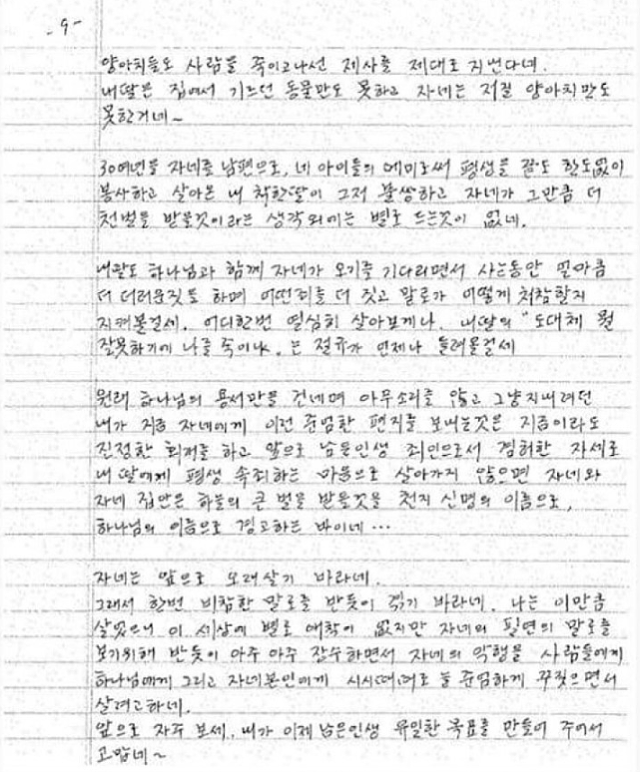 -9-
양아치들도 사람을 죽이고나선 제사를 제대로 지낸다네.
내딸은 집에서 기르던 동물만도 못하고 자네는 저질 양아치만도
못한거네~
30여년을 자네를 남편으로, 네 아이들의 에미로써 평생을 끔도 한도없이
봉사하고 살아온 내 착한딸이 그저 불쌍하고 자네가 그만큼 더
천벌을 받을것이라는 생각외에는 별로 드는것이 없네.
내딸도 하나님과 함께 자네가 오기를 기다리면서 사는동안 얼마큼
더 더러운짓을 하며 어떤죄를 더 짓고 말로가 어떻게 처참할지
지켜볼걸세. 어디한번 열심히 살아보게나. 내딸의 "도대체 뭘
잘못하기에 나를 죽이나. 는 절규가 언제나 들려올걸세
원래 하나님의 용서만을 건네며 아무소리를 않고 그냥지내려던
내가 지금 자네에게 이런 준엄한 편지를 보내는것은 지금이라도
진정한 회개를 하고 앞으로 남은인생 죄인으로서 겸허한 자세로
내 딸에게 평생 속죄하는 마음으로 살아가지 않으면 자네와
자네 집안은 하늘의 큰 벌을 받을것을 천지 신명의 이름으로,
하나님의 이름으로 경고하는 바이네...
자네는 앞으로 오래살기 바라네.
그래서 한번 비참한 말로를 반듯이 겪기 바라네. 나는 이만큼
살았으니 이 세상에 별로 애착이 없지만 자네의 필연의 말로를
보기위해 반듯이 아주 아주 장수하면서 자네의 악행을 사람들에게
하나님에게 그리고 자네본인에게 시시때때로 늘 준엄하게 꾸짖으면서
살려고하네.
앞으로 자주 보세. 내가 이제 남은인생 유일한 목표를 만들어 주어서
고맙네~